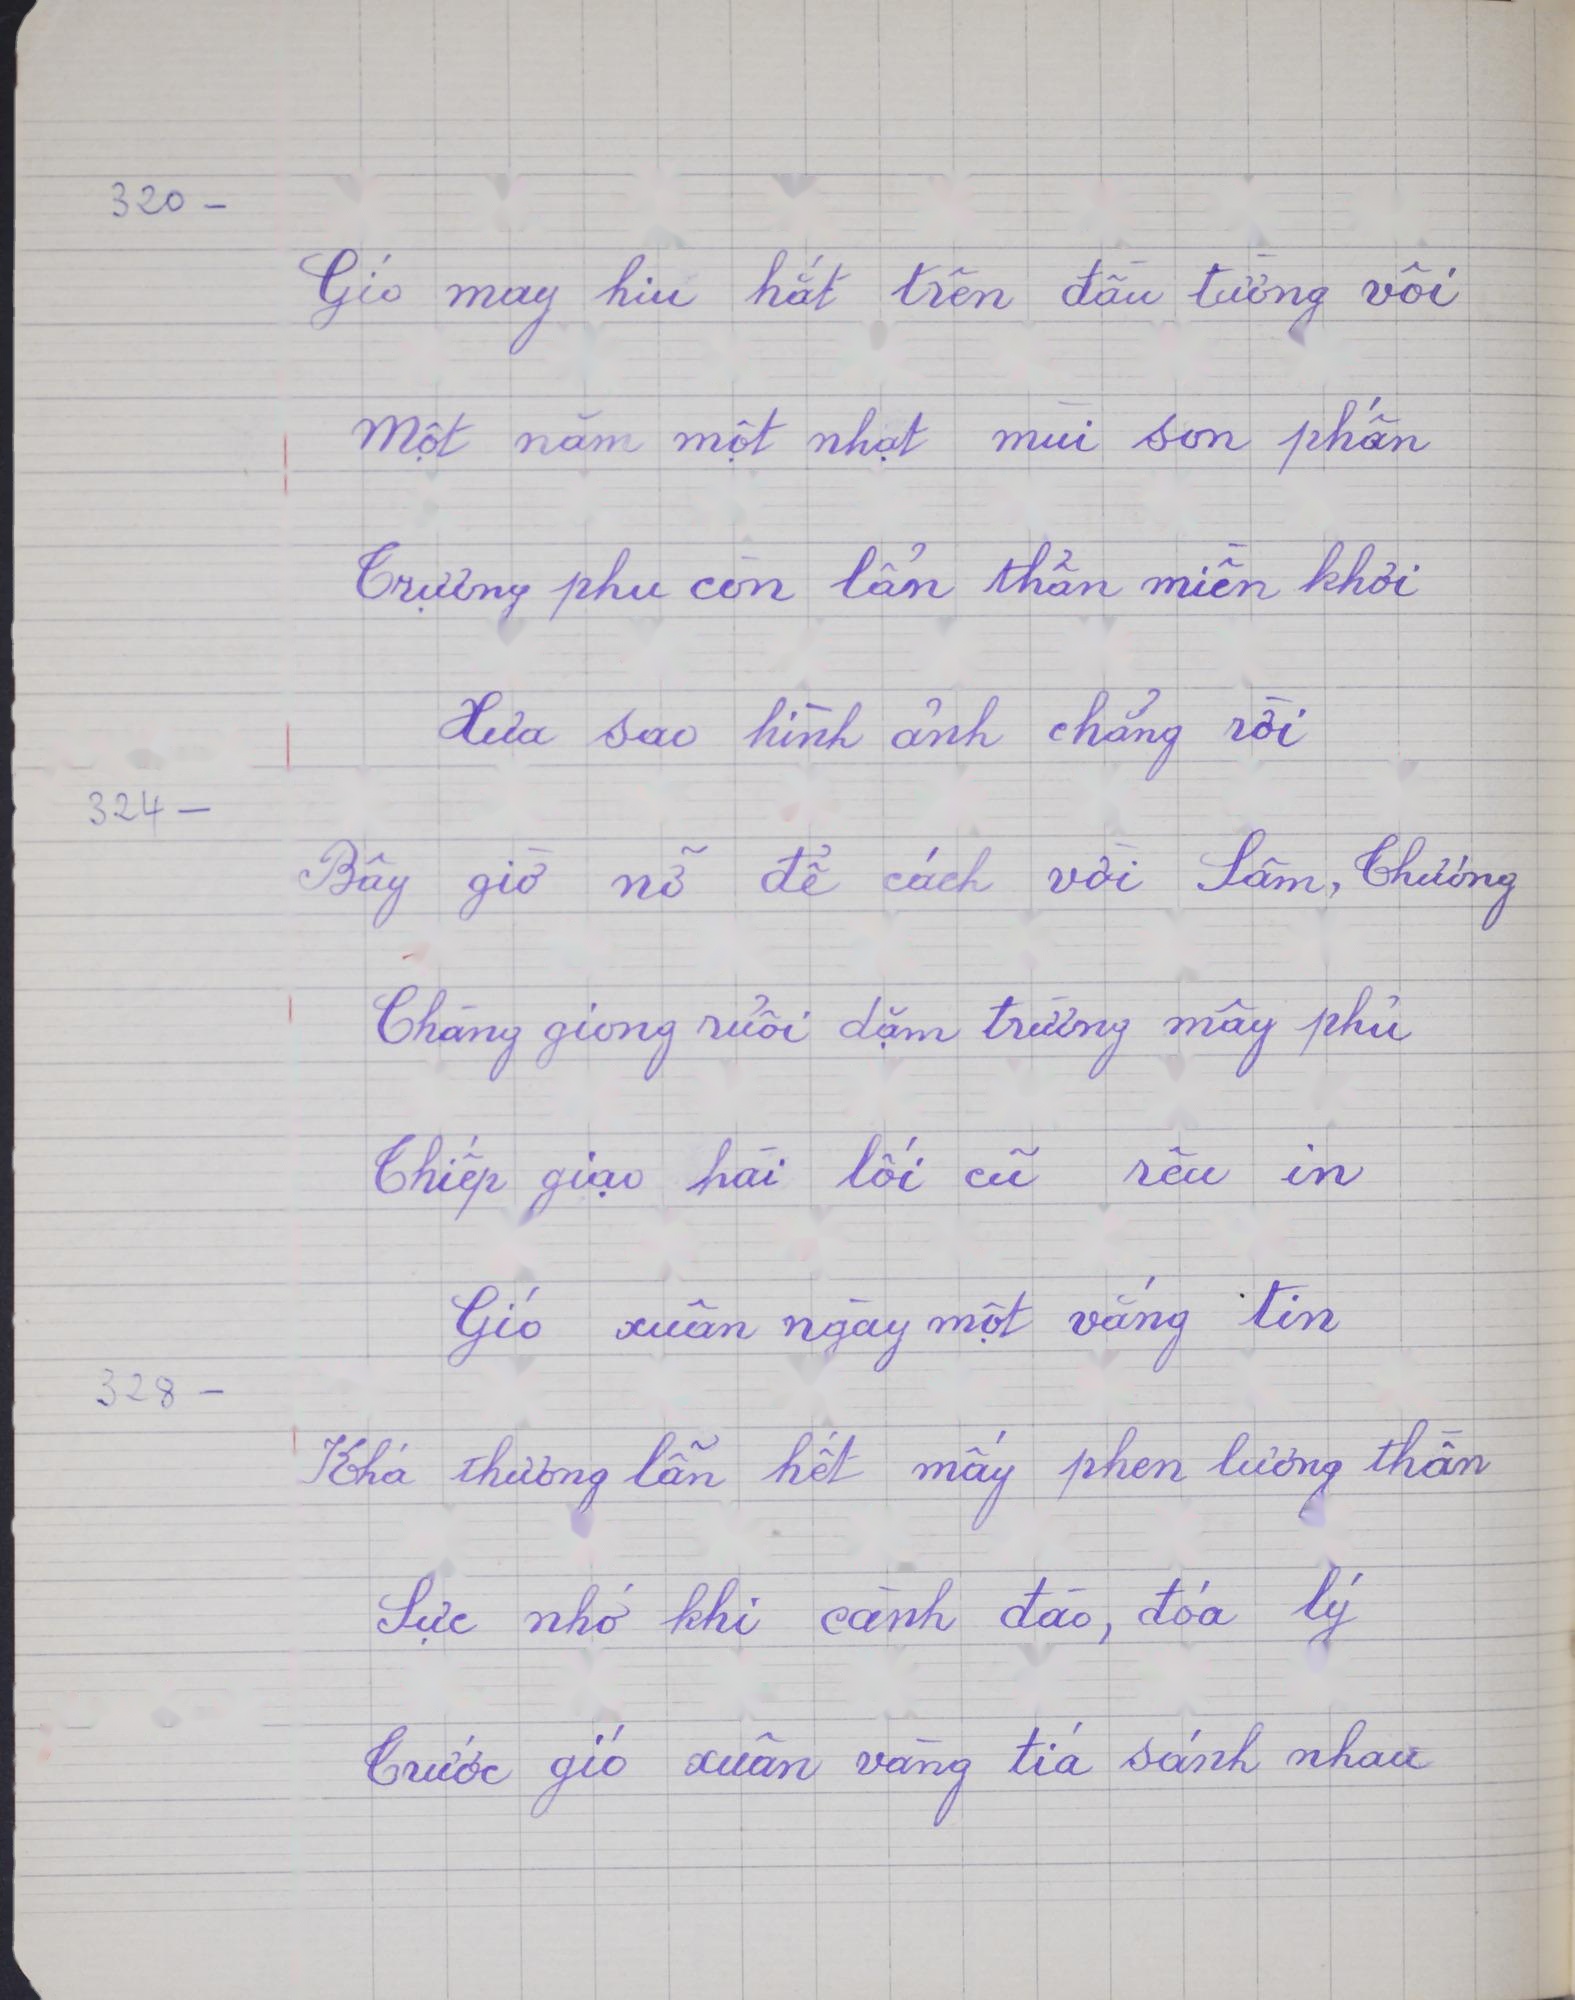 320 -
Gió may hiu hắt trên đầu tường vôi
Một năm một nhạt mùi son phấn
Trượng phu còn lẩn thẩn miền khơi
Xưa sao hình ảnh chẳng rời
324 -
Bây giờ nỡ để cách vời Sâm, Thương
Chàng giong ruổi dặm trường mây phủ
Thiếp giạo hài lối cũ rêu in
Gió xuân ngày một vắng tin
328 -
Khá thương lẫn hết mấy phen lương thần
Sực nhớ khi cành đào, đóa lý
Trước gió xuân vàng tiá sánh nhau